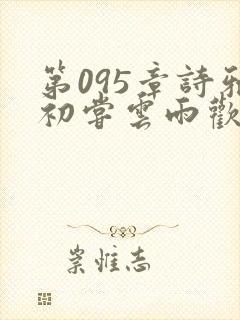 第095章詩雅
初嘗雲雨歡
崇惟志